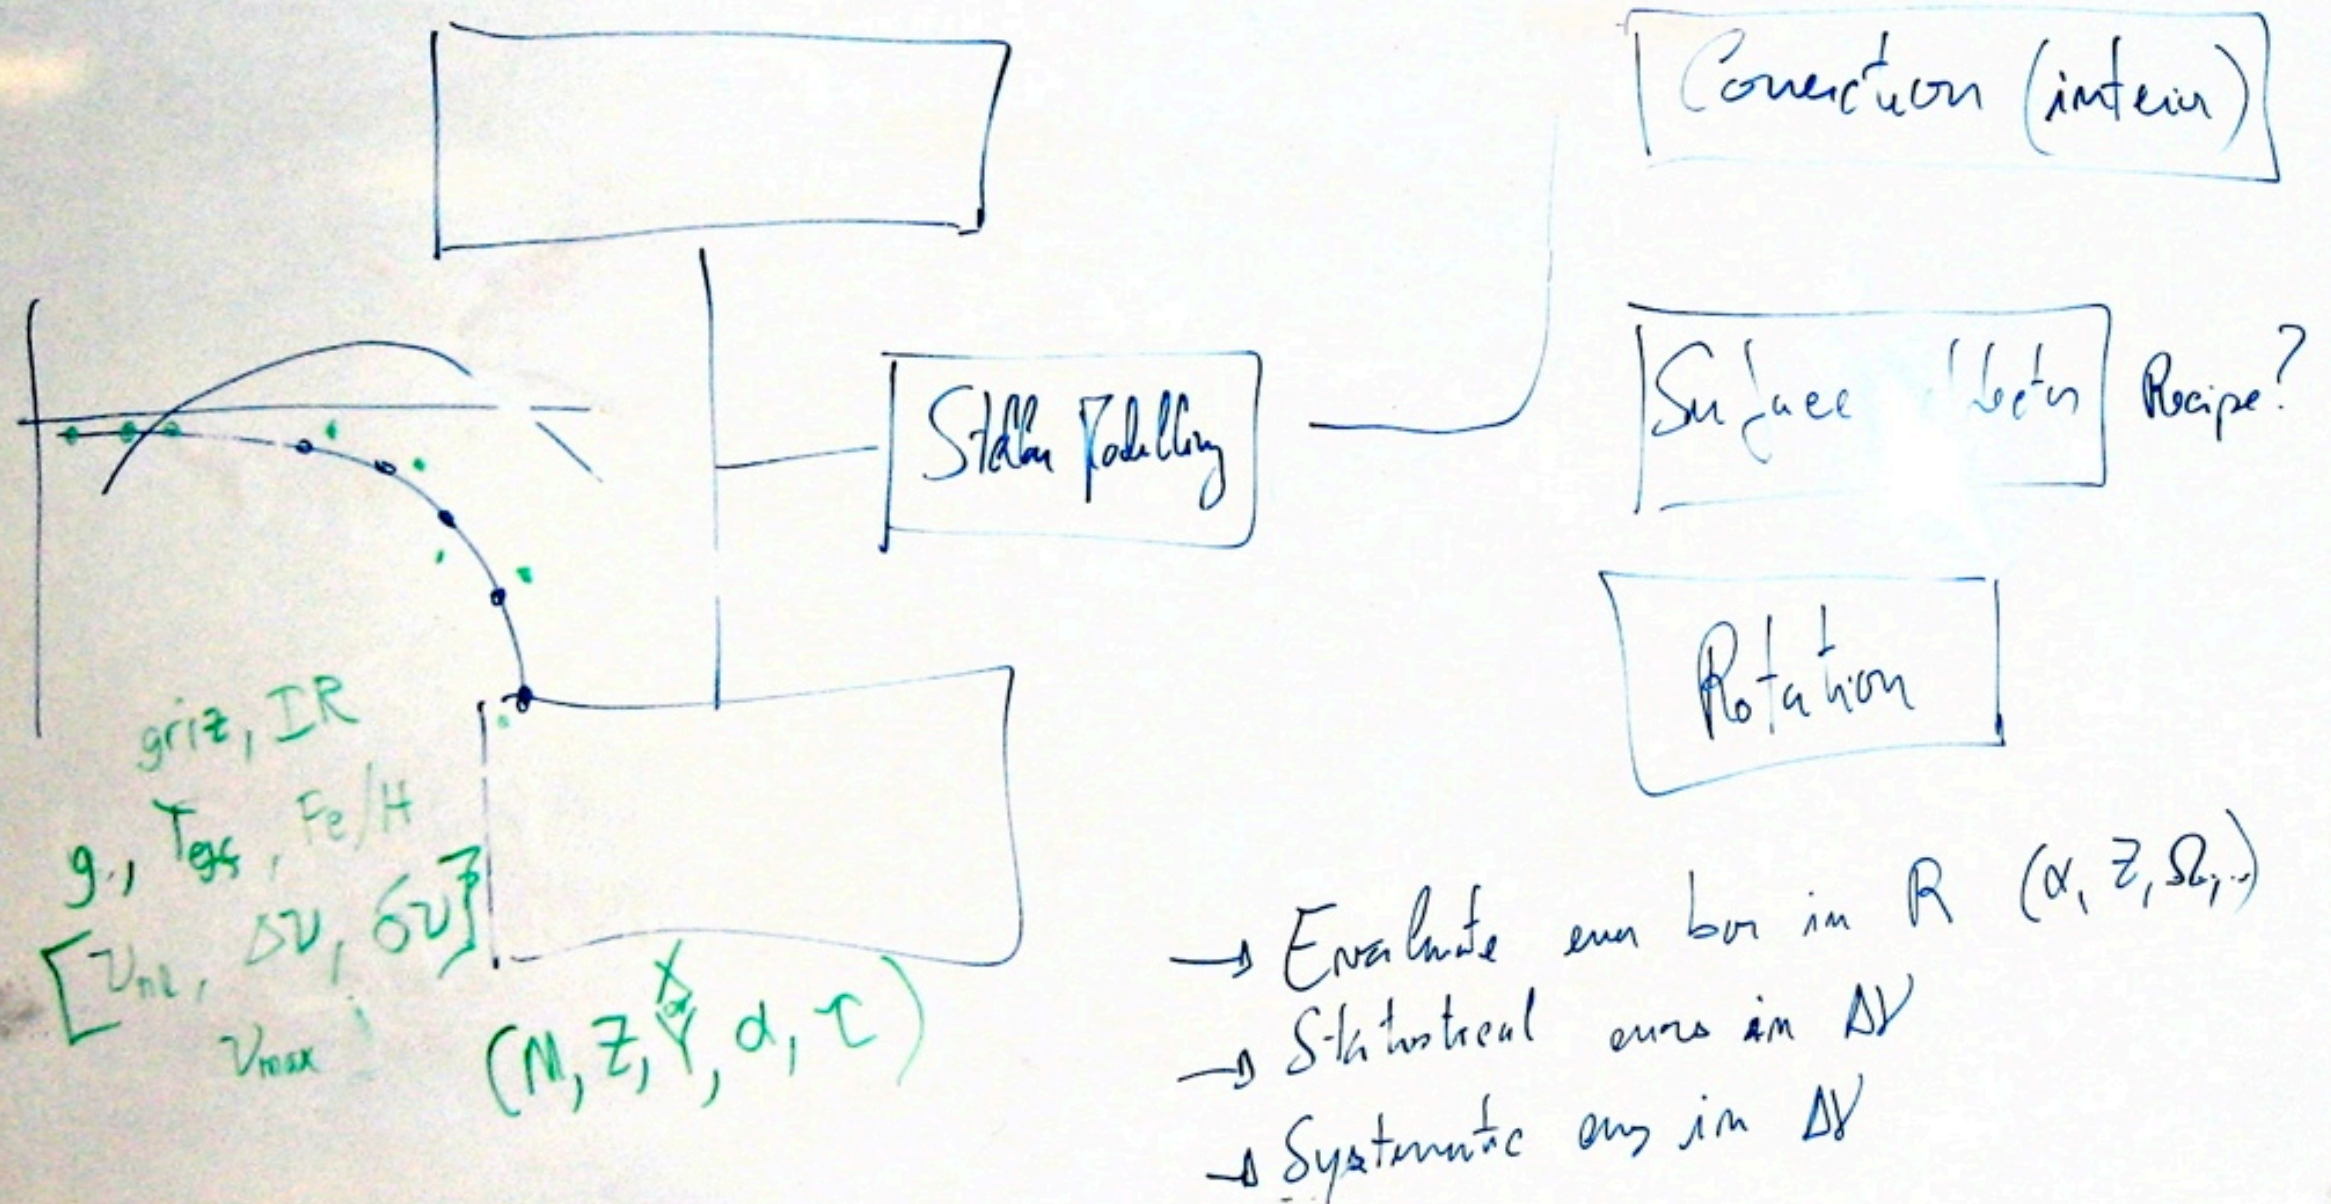 Convection (interior)
Stellar Modelling
Surface effects Recipe?
Rotation
griz, IR
g, Teff, Fe/H
[νnl, Δν, δν]
νmax
X
(M, Z, Y, α, τ)
→ Evaluate error bar in R (α, Z, Ω,..)
→ Statistical errors in Δν
→ Systematic errors in Δν